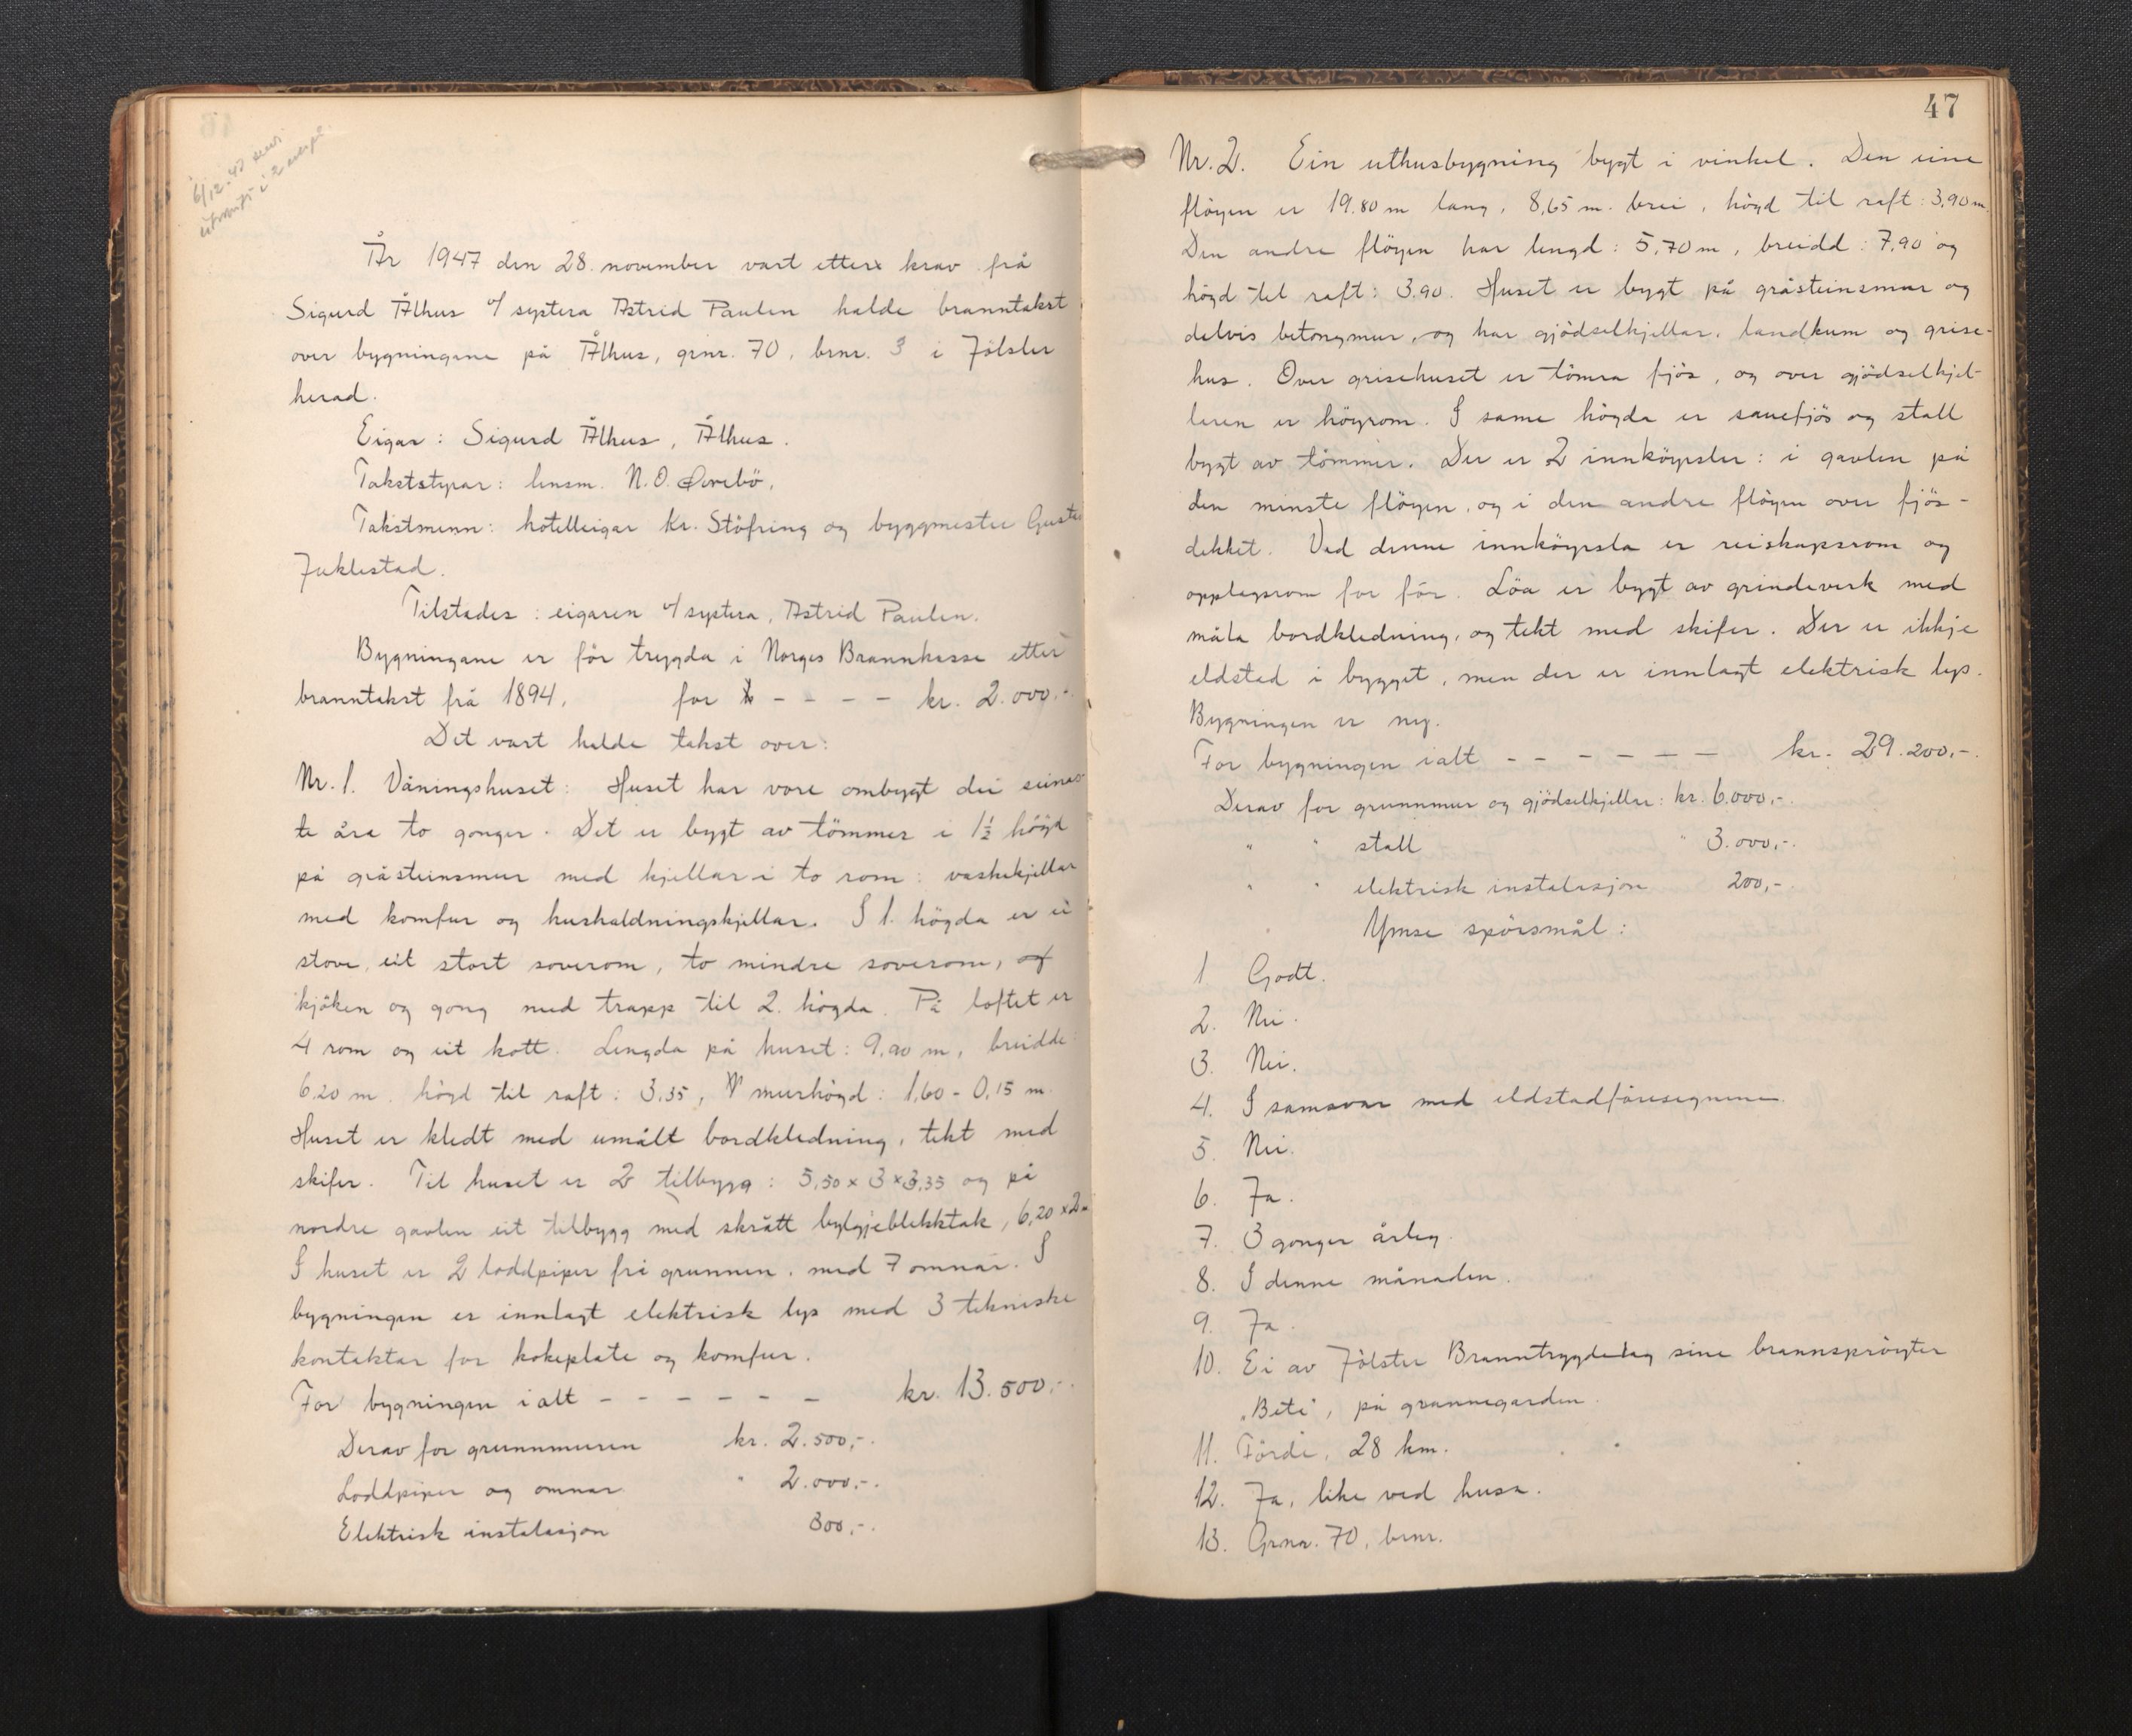 6/12-47 send
i 2 
År 1947 den 28. november vart etter krav frå
Sigurd Ålhus v/ systera Astrid Paulen halde branntakst
over bygningane på Ålhus, grnr. 70, brnr. 3 i Jölster
herad.
Eigar: Sigurd Ålhus, Ålhus.
Takststyrar: lensm. N. O. Örebö.
Takstmenn: hotelleigar Kr. Stöfring og byggmester Gustav
Juklestad.
Tilstades: eigaren v/ systera, Astrid Paulen.
Bygningane er för trygda i Norges Brannkasse etter
branntakst frå 1894, for - - - - kr. 2.000.-.
Det vart halde takst over:
Nr. 1. Våningshuset: Huset har vore ombygt dei seinas-
te åra to gonger. Det er bygt av tömmer i 1½ högd
på gråsteinsmur med kjellar i to rom: vaskekjellar
med komfur og hushaldningskjellar. I 1. högda er ei
stove, eit stort soverom, to mindre soverom, og
kjöken og gong med trapp til 2. högda. På loftet er
4 rom og eit kott. Lengda på huset: 9,90 m, breidde:
6,20 m. högd til raft: 3,35, murhögd: 1,60 - 0,15 m.
Huset er kledt med umålt bordkledning, tekt med
skifer. Til huset er 2 tilbygg: 5,50 x 3 x 3,35 og på
nordre gavlen eit tilbygg med skrått bylgjeblekktak, 6,20 x 2 m
I huset er 2 loddpiper frå grunnen, med 7 omnar. I
bygningen er innlagt elektrisk lys med 3 tekniske
kontaktar for kokeplate og komfur.
For bygningen ialt - - - - - - kr. 13.500.-.
Derav for grunnmuren kr. 2.500,-.
Loddpiper og omnar " 2.000,-.
Elektrisk instalasjon 300,-.
47
Nr. 2. Ein uthusbygning bygt i vinkel. Den eine
flöyen er 19.80 m lang, 8,65 m. brei, högd til raft: 3,90 m.
Den andre flöyen har lengd: 5,70 m, breidd: 7,90 og
högd til raft: 3.90. Huset er bygt på gråsteinsmur og
delvis betongmur, og har gjödselkjellar, landkum og grise-
hus. Over grisehuset er tömra fjös, og over gjödselkjel-
leren er höyrom. I same högda er sauefjös og stall
bygt av tömmer. Der er 2 innköyrsler: i gavlen på
den minste flöyen, og i den andre flöyen over fjös-
dekket. Ved denne innköyrsla er reiskapsrom og
opplegsrom for fôr. Löa er bygt av grindeverk med
måla bordkledning, og tekt med skifer. Der er ikkje
eldstad i bygget, men der er innlagt elektrisk lys.
Bygningen er ny.
For bygningen ialt - - - - - - kr. 29.200,-.
Derav for grunnmur og gjödselkjellar: kr. 6.000,-.
" " stall " 3.000,-.
" " elektrisk instalasjon 200,-.
Ymse spörsmål:
1 Godt.
2. Nei.
3. Nei.
4. I samsvar med eldstadföresegnene.
5. Nei.
6. Ja.
7. 3 gonger årleg.
8. I denne månaden.
9. Ja.
10. Ei av Jölster Branntrygdelag sine brannspröyter
"Beti", på grannegarden.
11. Förde, 28 km.
12. Ja, like ved husa.
13. Grnr. 70, brnr.